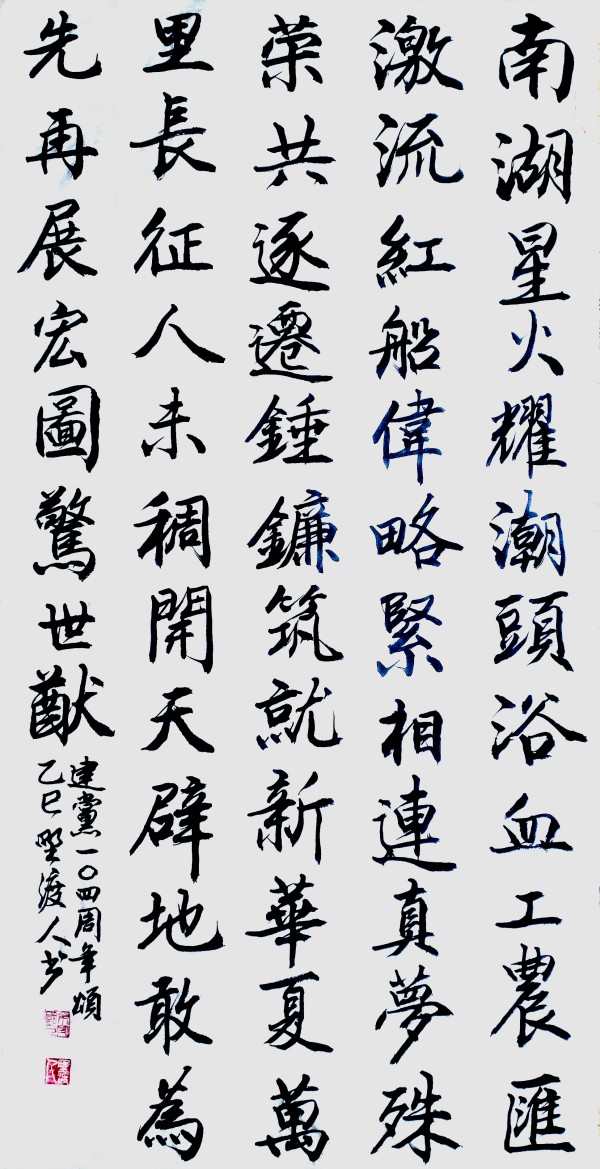 南湖星火耀潮頭浴血工農匯
激流紅船偉略緊相連真夢殊
荣共逐遷錘鐮筑就新華夏萬
里長征人未稠開天辟地敢為
先再展宏圖驚世猷
建黨一〇四周年頌
乙巳野渡人书